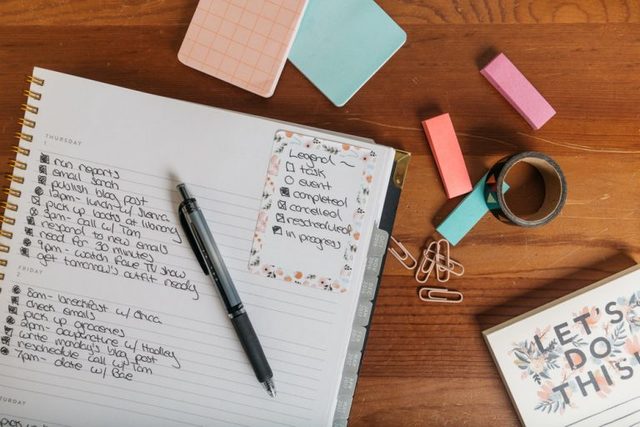 THURSDAY
1
run reports
email Sarah
publish blog post
12pm- lunch w/ Sienna
pick up books at library
3pm- call w/ Tam
respond to new emails
read for 30 minutes
9pm - watch fave TV show
get tomorrow's outfit ready
FRIDAY
2
8am- breakfast w/ Erica
check emails
pick up groceries
2pm- acupuncture w/ Hadley
write monday's blog post
reschedule call w/ Tam
7pm- date w/ Bae
SATURDAY
Legend ~
task
event
completed
cancelled
rescheduled
in progress
LET'S
DO
THIS!